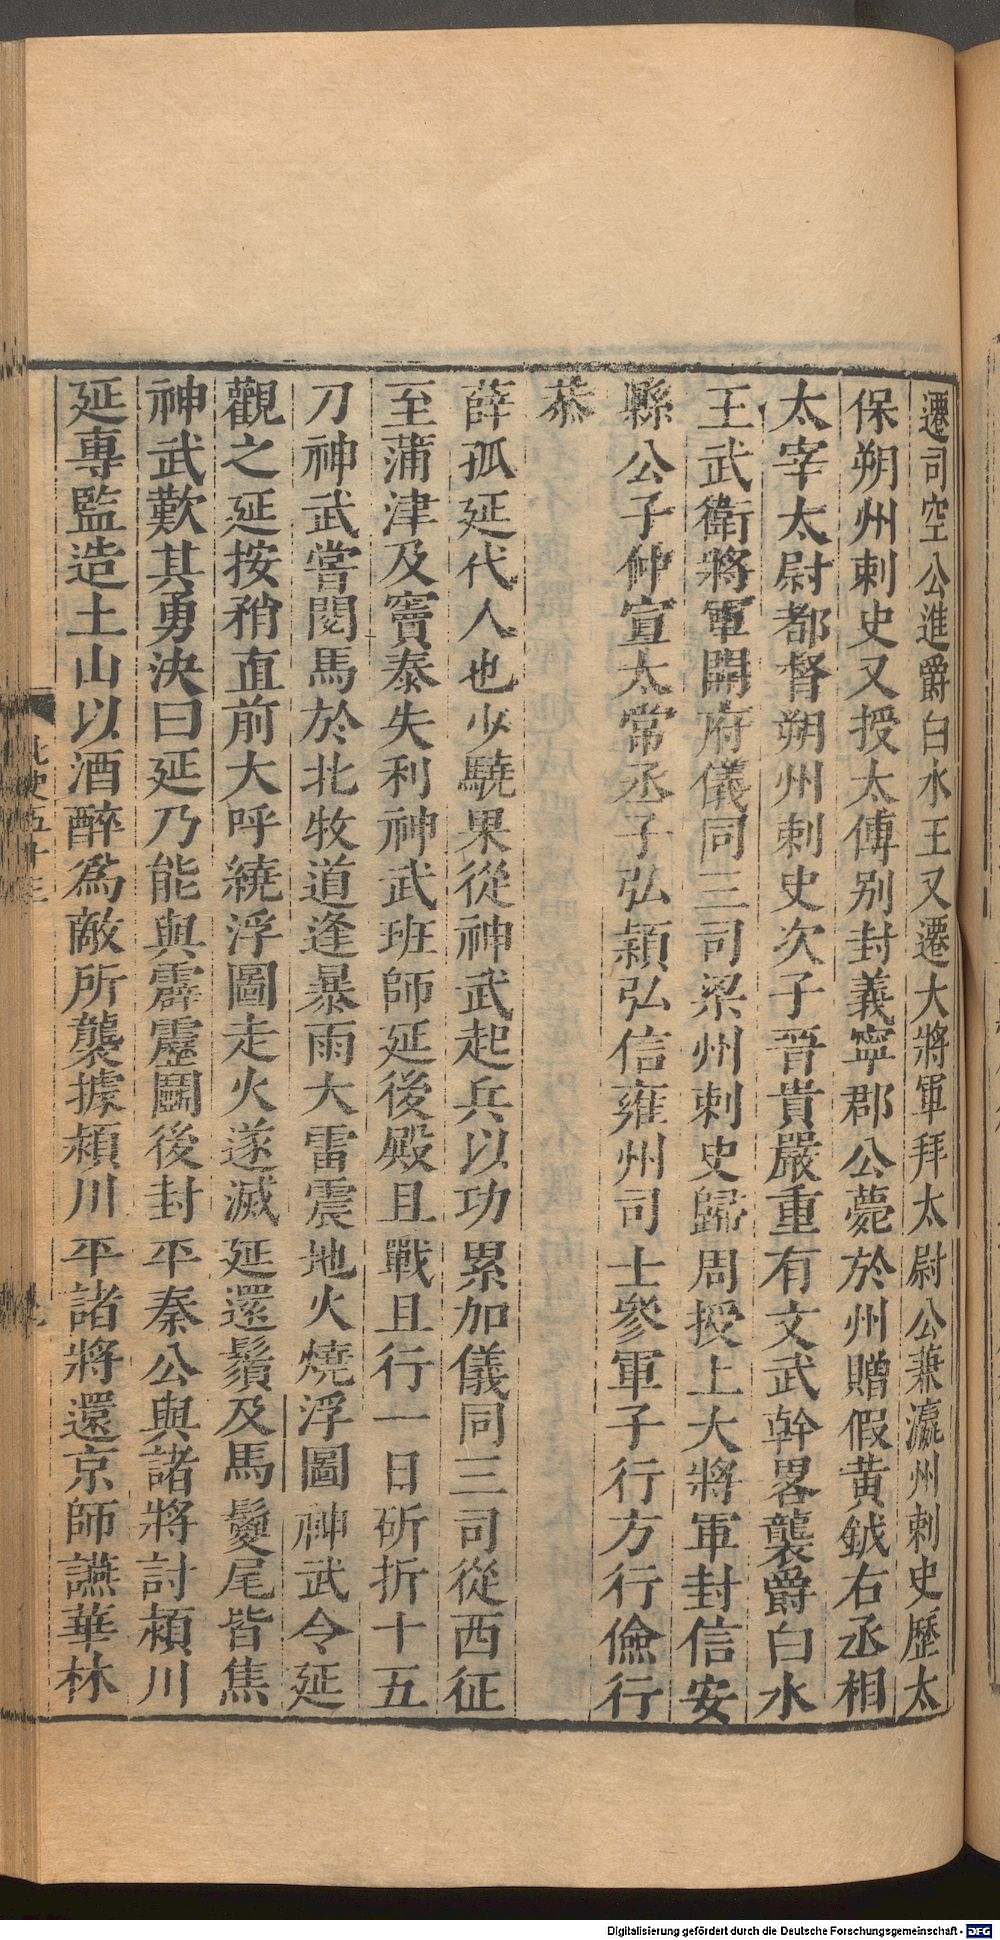 遷司空公進爵白水王又遷大將軍拜太尉公兼瀛州刺史歷太
保朔州刺史又授太傅别封義寧郡公薨於州贈假黄鉞右丞相
太宰太尉都督朔州刺史次子晉貴嚴重有文武幹畧襲爵白水
王武衛將軍開府儀同三司梁州刺史歸周授上大將軍封信安
縣公子仲宣太常丞子弘穎弘信雍州司士參軍子行方行儉行
恭
薛孤延代人也少驍果從神武起兵以功累加儀同三司從西征
至蒲津及竇泰失利神武班師延後殿且戰且行一日斫折十五
刀神武嘗閱馬於北牧道逢暴雨大雷震地火燒浮圖神武令延
觀之延按矟直前大呼繞浮圖走火遂滅延還鬚及馬鬉尾皆焦
神武歎其勇決曰延乃能與霹靂鬭後封平秦公與諸將討潁川
延專監造土山以酒醉爲敵所襲據潁川平諸將還京師讌華林
北史五十三
Digitalisierung gefördert durch die Deutsche Forschungsgemeinschaft - DFG